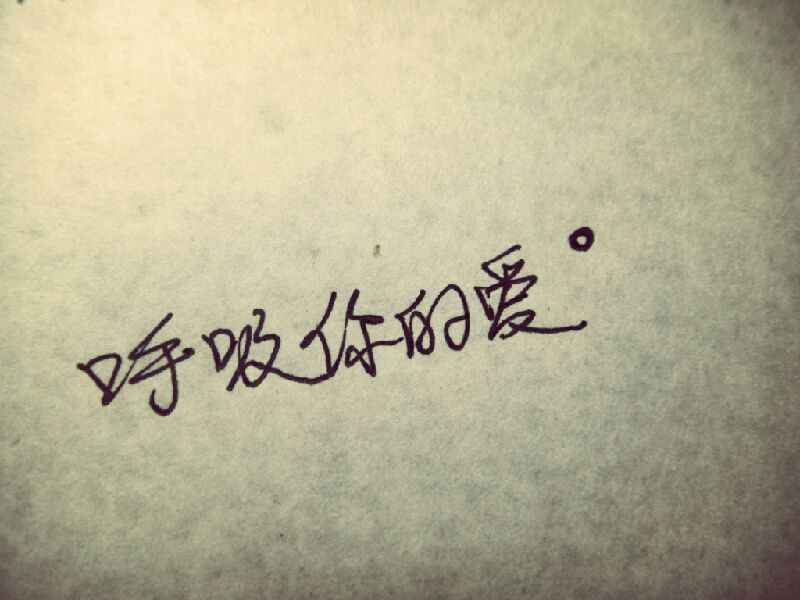 呼吸你的爱°